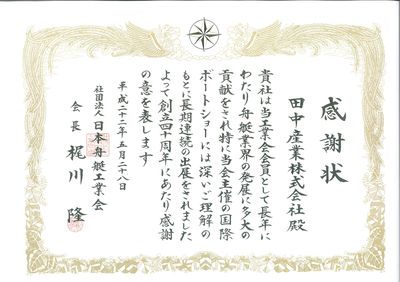 感謝状
田中産業株式会社殿
貴社は当工業会会員として長年に
わたり舟艇業界の発展に多大の
貢献をされ特に当会主催の国際
ボートショーには深いご理解の
もとに長期連続の出展をされました
よって創立四十周年にあたり感謝
の意を表します
平成二十二年五月二十八日
社団法人日本舟艇工業会
会長 梶川 隆